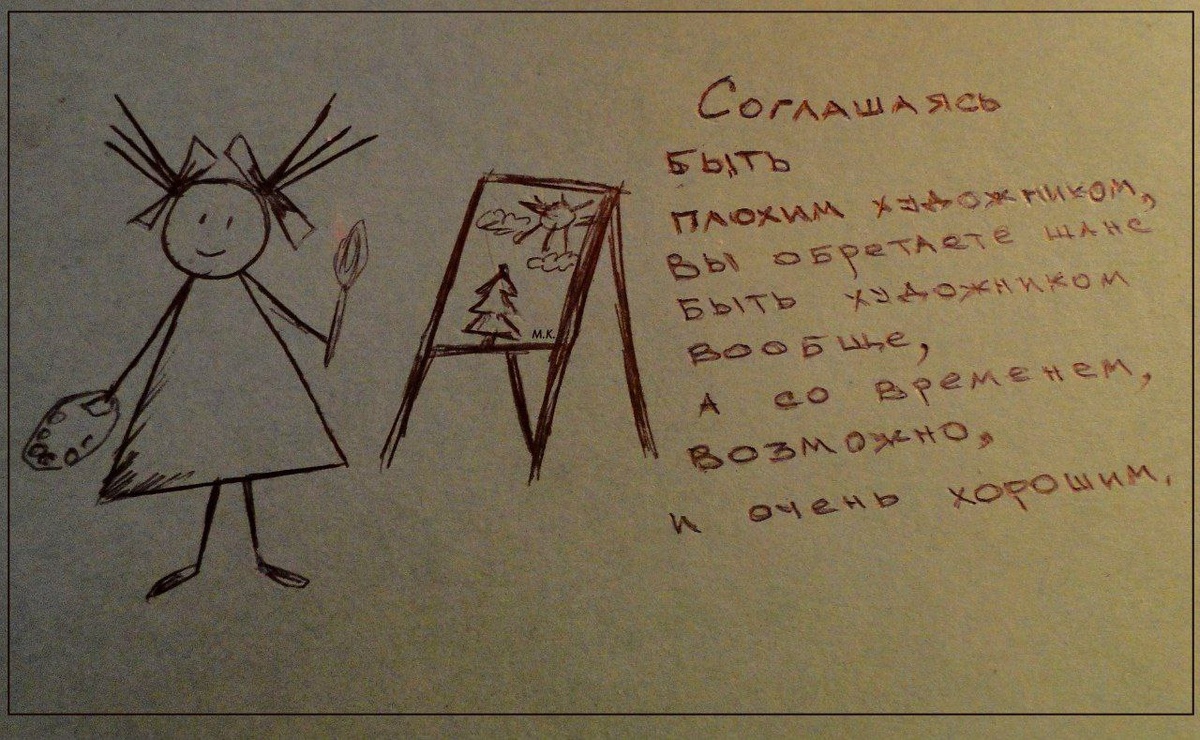 Соглашаясь
быть
плохим художником,
вы обретаете шанс
быть художником
вообще,
а со временем,
возможно,
и очень хорошим.
М.К.